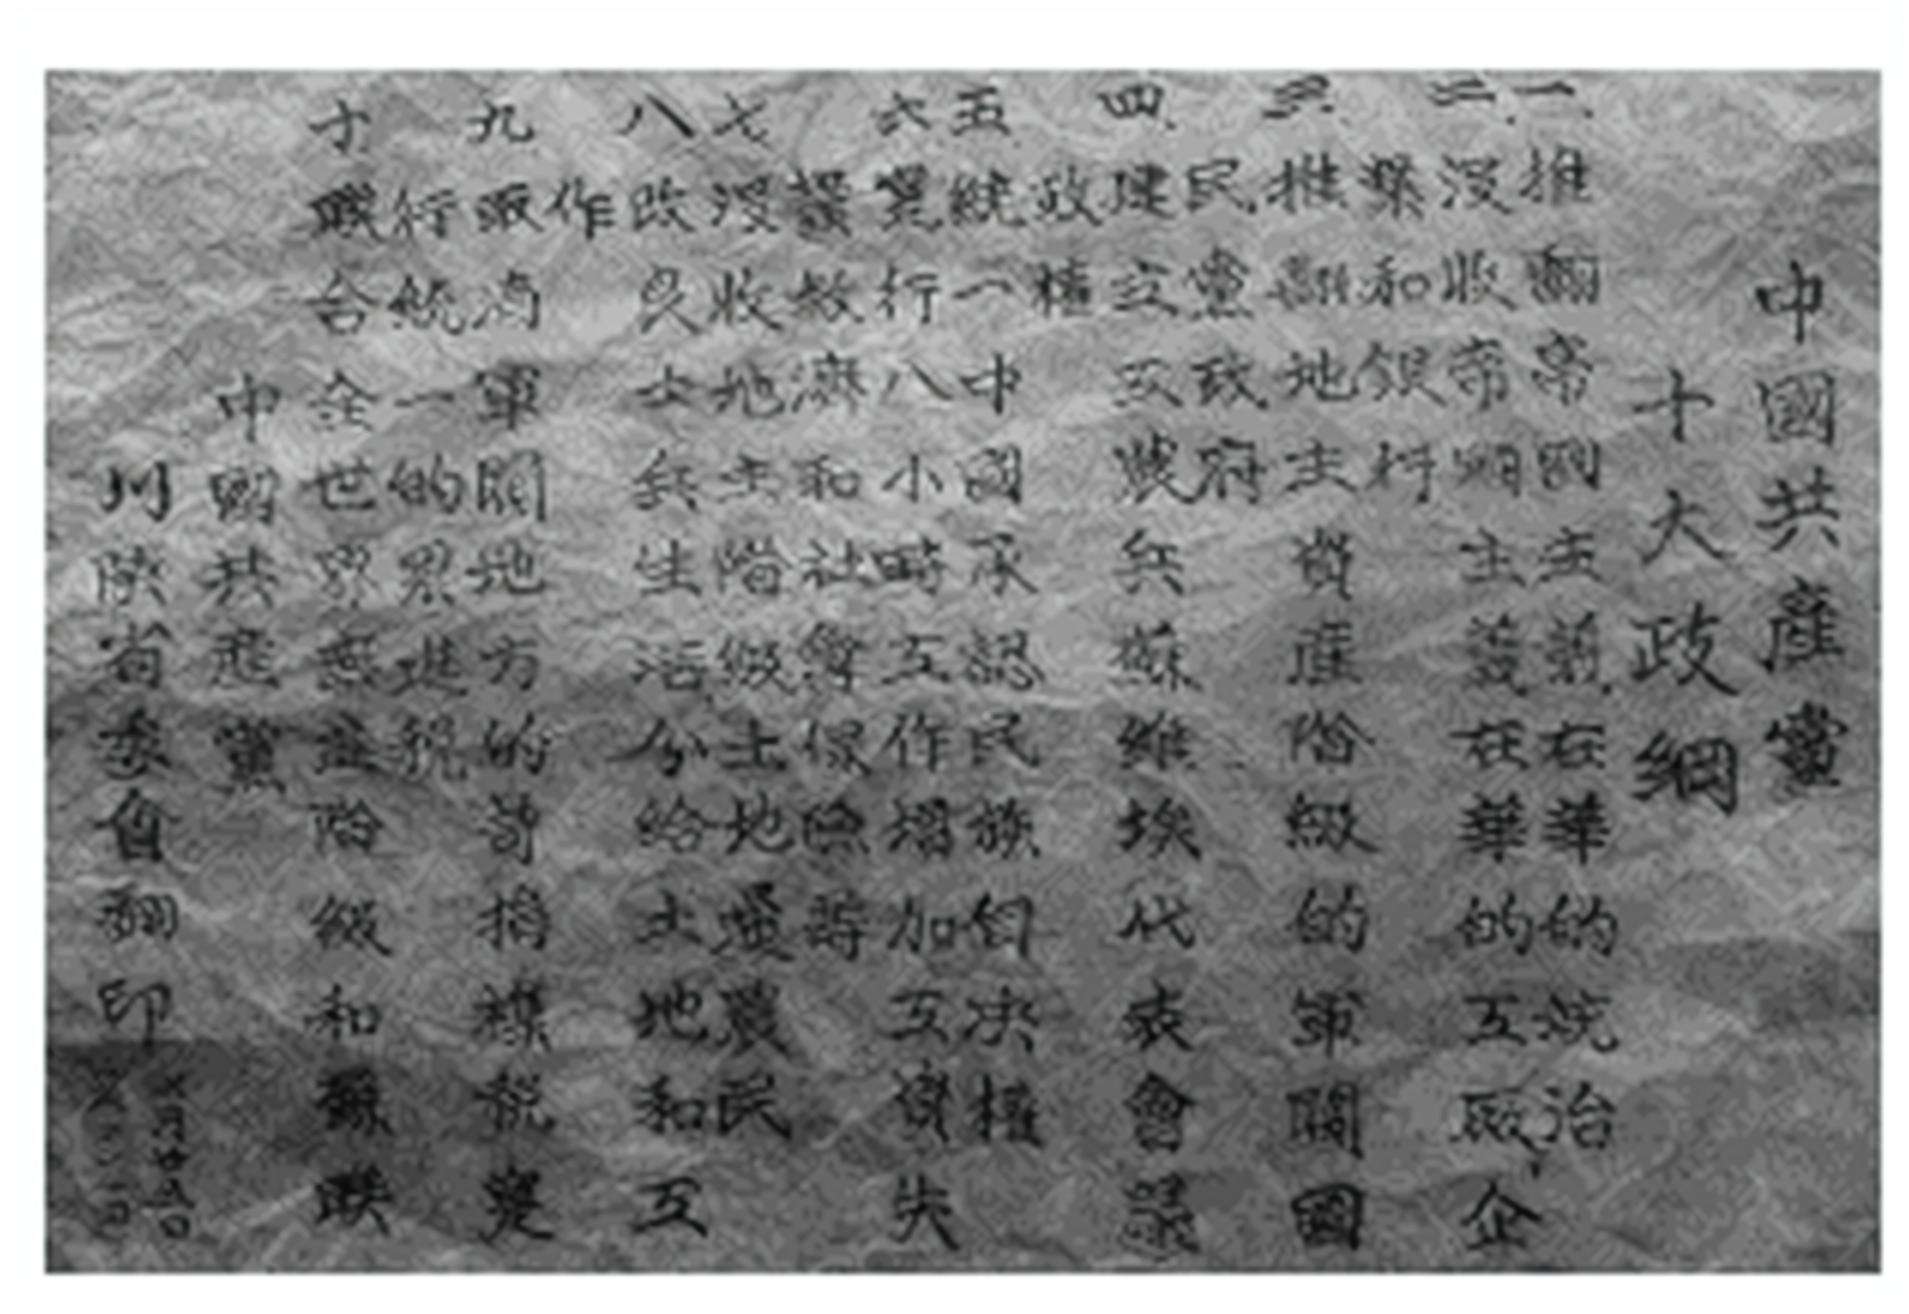 中國共產黨
十大政綱
一.推翻帝國主義在華的統治
二.沒收帝國主義在華的工廠、企
業和銀行
三.推翻地主資產階級的軍閥國
民黨政府
四.建立工農兵蘇維埃代表會議
政權
五.統一中國承認民族自決權
六實行八小時工作增加工資失
業救濟和社會保險等
七沒收地主階級土地歸農民
八改良士兵生活分給土地和工
作
九取消軍閥地方的苛捐雜稅實
行統一的累進稅
十聯合全世界無產階級和蘇聯
中國共產黨
川陝省委翻印